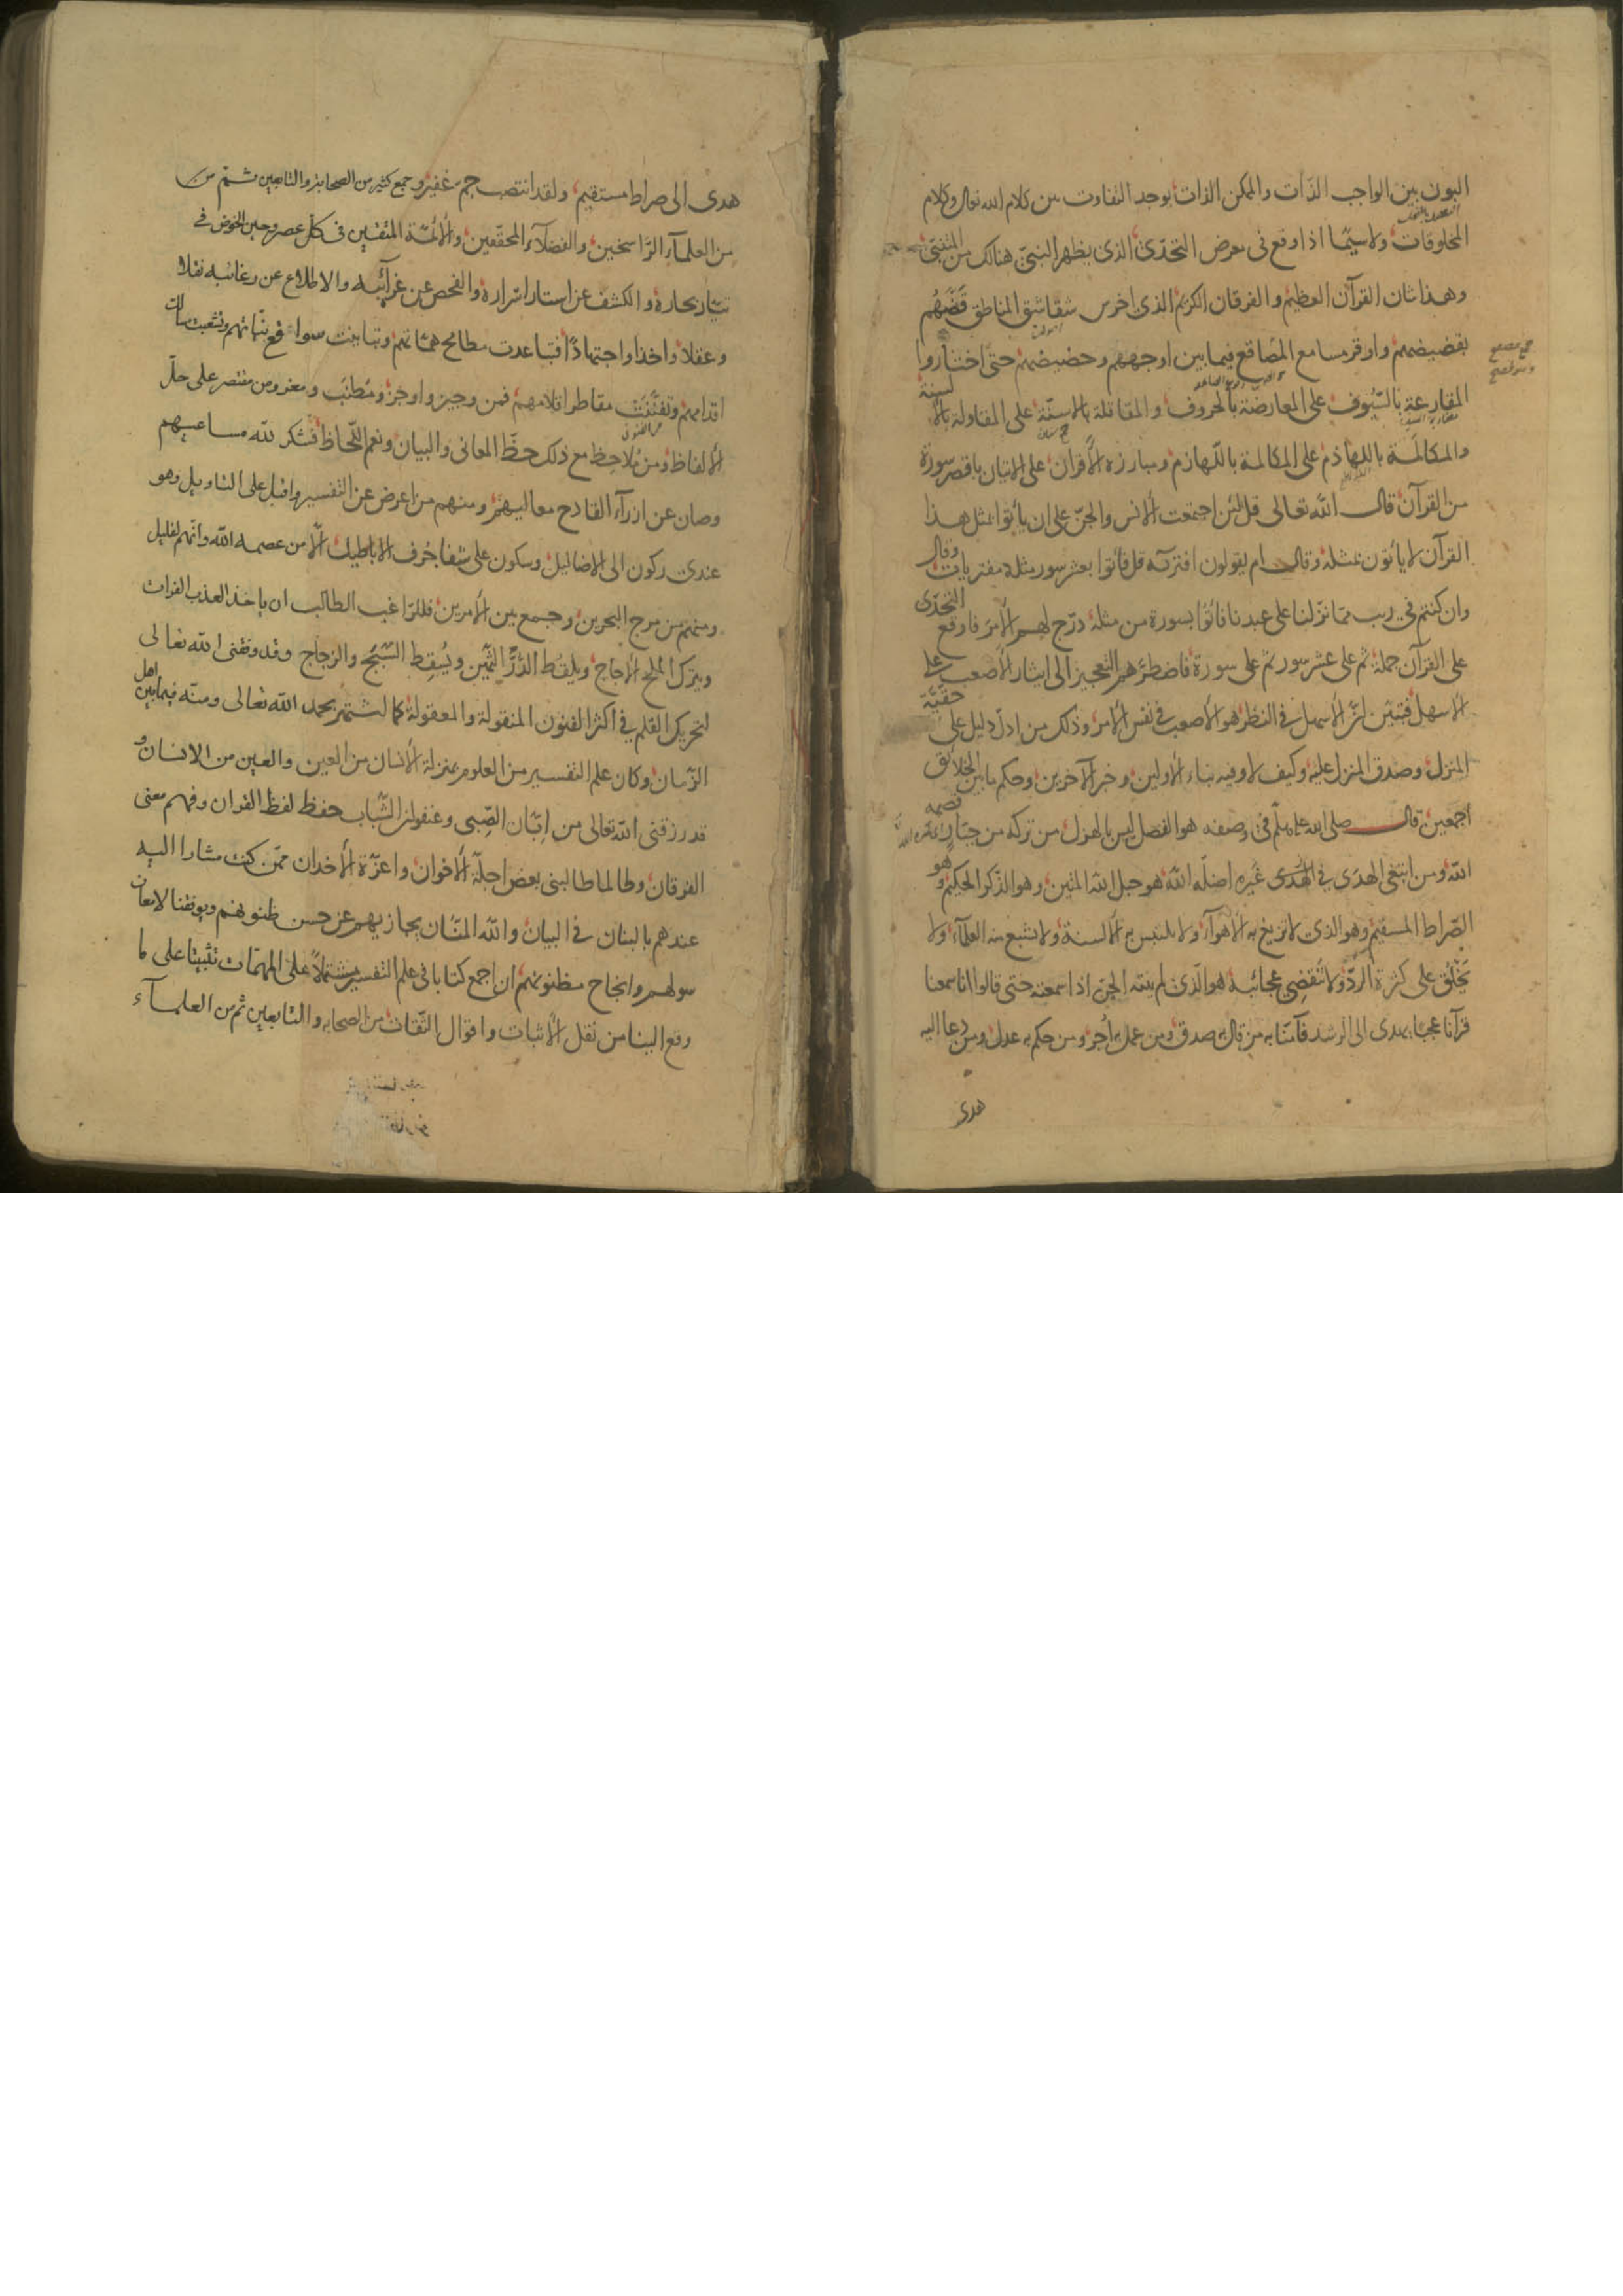 البون بين الواجب الذات والممكن الذات يوجد التفاوت بين كلام الله تعالى وكلام
المخلوقات ولا سيما اذا وقع فى معرض التحدّى الذى يظهر النبىّ هنالك من المتنبّى
وهذا شان القرآن العظيم والفرقان الكريم الذى اخرس شقاشق المناطق قَضَّهُم
بقضيضهم واوقر مسامع المصاقع فيما بين اوجههم وحضيضهم حتى اختاروا
المقارعة بالسّيُوف على المعارضة بالحروف والمقاتلة بالاسنّة على المقاولة بالألسنة
والمكالَمة باللهاذم على المكالمة باللّهازم ومبارزة الأقران على الاتيان باقصر سورة
من القرآن قال الله تعالى قل لئن اجتمعت الانس والجنّ على ان يأتوا بمثل هذا
القرآن لا يأتون بمثله وقال ام يقولون افتريه قل فأتوا بعشر سور مثله مفتريات وقال
وان كنتم فى ريب ممّا نزّلنا على عبدنا فأتُوا بسورة من مثله درّج لهم الأمر فاوقع التحدّى
على القرآن جملة ثم على عشر سور ثم على سورة فاضطرّهم التعجيز الى ايثار الأصعب على
الأسهل فتبيّن انّ الأسهل فى النظر هو الأصعب فى نفس الأمر وذلك من ادلّ دليل على حقّيّة
المنزل وصدق المنزل عليه وكيف لا وفيه نباء الأولين وخبر الآخرين وحكم ما بين الخلائق
اجمعين قال صلى الله عليه وسلم فى وصفه هو الفصل ليس بالهزل من تركه من جبّار قصمه
الله ومن ابتغى الهدَى فى غيره اضلّه الله هو حبل الله المتين وهو الذّكر الحكيم وهو
الصّراط المستقيم وهو الذى لا تزيغ به الاهوآء ولا يلتبس به الألسنة ولا تشبع منه العلمآء ولا
يَخْلَق على كثرة الرّدّ ولا تنقضى عجائبه هو الّذى لم ينته الجنّ اذا سمعته حتى قالوا انّا سمعنا
قرآنا عجبًا يهدى الى الرشد فآمنّا به من قال به صدق ومن عمل به أجر ومن حكم به عدل ومن دعا اليه
هدى
هدى الى صراط مستقيم ولقد انتصب جمّ غفير وجمع كثير من الصحابة والتابعين ثمّ من
من العلمآء الرّاسخين والفضلآء المحققين والأئمّة المتقنين فى كلّ عصر وحين الخوض فى
تيّار بحاره والكشف عن استار اسْراره والفحص عن غرآئبه والاطلاع عن رغائبه نقلا
وعقلا واخذا واجتهادًا فتباعدت مطامح همّاتهم وتباينت سوافع نيّاتهم وتشعّبت مسالك
اقدامهم وتفنّنَت مقاطر اقلامهم فمن وجيز واوجز ومُطنب ومعزو من مقتصر على حلّ
الألفاظ ومن مُلاحِظ مع ذلك حظّ المعانى والبيان ونعم اللّحاظ فشكر لله مساعيهم
وصان عن ازرآء القادح معاليهم ومنهم من اعرض عن التفسير واقبل على التاويل وهو
عندى ركون الى الاضاليل وسكون على شفا جُرف الاباطيل الّا من عصمه الله وانّهم لقليل
ومنهم من مرج البحرين وجمع بين الأمرين فللرّاغب الطالب ان يأخذ العذب الفرات
ويترك الملح الاجاج ويلقُط الدُّرّ الثمين ويُسْقِط السّبَج والزجاج وقد وفّقنى الله تعالى
لتحريك القلم فى اكثر الفنون المنقولة والمعقولة كما اشتهر بحمد الله تعالى ومنّه فيما بين اهل
الزّمان وكان علم التفسير من العلوم بمنزلة الأنسان من العين والعين من الانسان و
قد رزقنى الله تعالى من ابّان الصّبى وعنفوان الشّباب حفظ لفظ القران وفهم معنى
الفرقان وطالما طالبنى بعض اجلّة الأخوان واعزّة الأخدان ممّن كنت مشارا اليه
عندهم بالبنان فى البيان والله المنّان يجازيهم عن حسن ظنونهم ويوفقنا لاسعاف
سولهم وانجاح مظنونهم ان اجمع كتابا فى علم التفسير مشتملاً على المهمّات تثبيتا على ما
وقع الينا من نقل الأثبات واقوال الثّقات من الصحابه والتابعين ثم من العلمآء